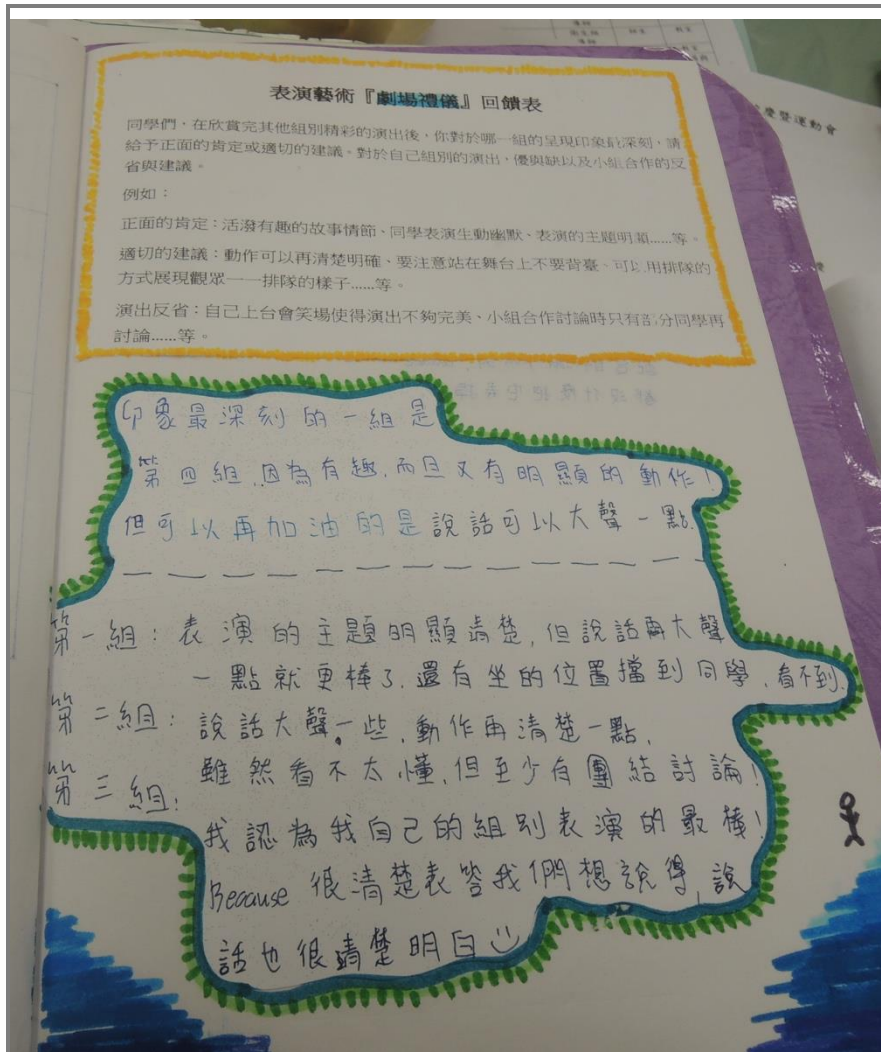 表演藝術『劇場禮儀』回饋表
同學們，在欣賞完其他組別精彩的演出後，你對於哪一組的呈現印象最深刻，請
給予正面的肯定或適切的建議。對於自己組別的演出，優與缺以及小組合作的反
省與建議。
例如：
正面的肯定：活潑有趣的故事情節、同學表演生動幽默、表演的主題明顯......等。
適切的建議：動作可以再清楚明確、要注意站在舞台上不要背臺、可以用排隊的
方式展現觀眾一一排隊的樣子......等。
演出反省：自己上台會笑場使得演出不夠完美、小組合作討論時只有部分同學再
討論......等。
慶暨運動會
印象最深刻的一組是
第四組,因為有趣,而且又有明顯的動作!
但可以再加油的是說話可以大聲一點.
第一組: 表演的主題明顯清楚,但說話再大聲
一點就更棒了.還有坐的位置擋到同學,看不到.
第二組: 說話大聲一些,動作再清楚一點.
第三組: 雖然看不太懂,但至少有團結討論!
我認為我自己的組別表演的最棒!
Because 很清楚表答我們想說得,說
話也很清楚明白